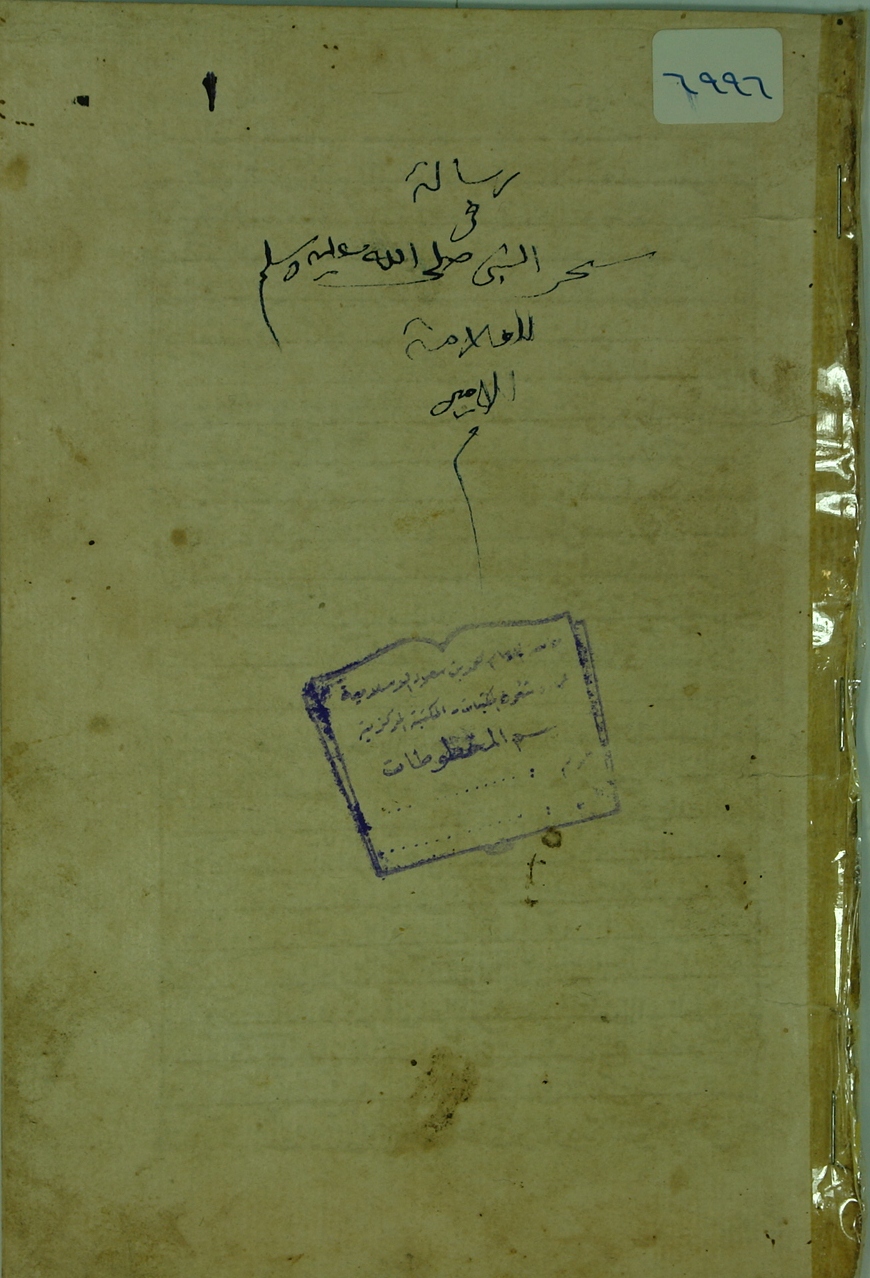 ٦٩٩٦
رسالة
فى
سحر النبى صلى الله عليه وسلم
للعلامة
الامير
م
الامام محمد بن سعود الاسلامية
شئون المكتبات - المكتبة المركزية
قسم المخطوطات